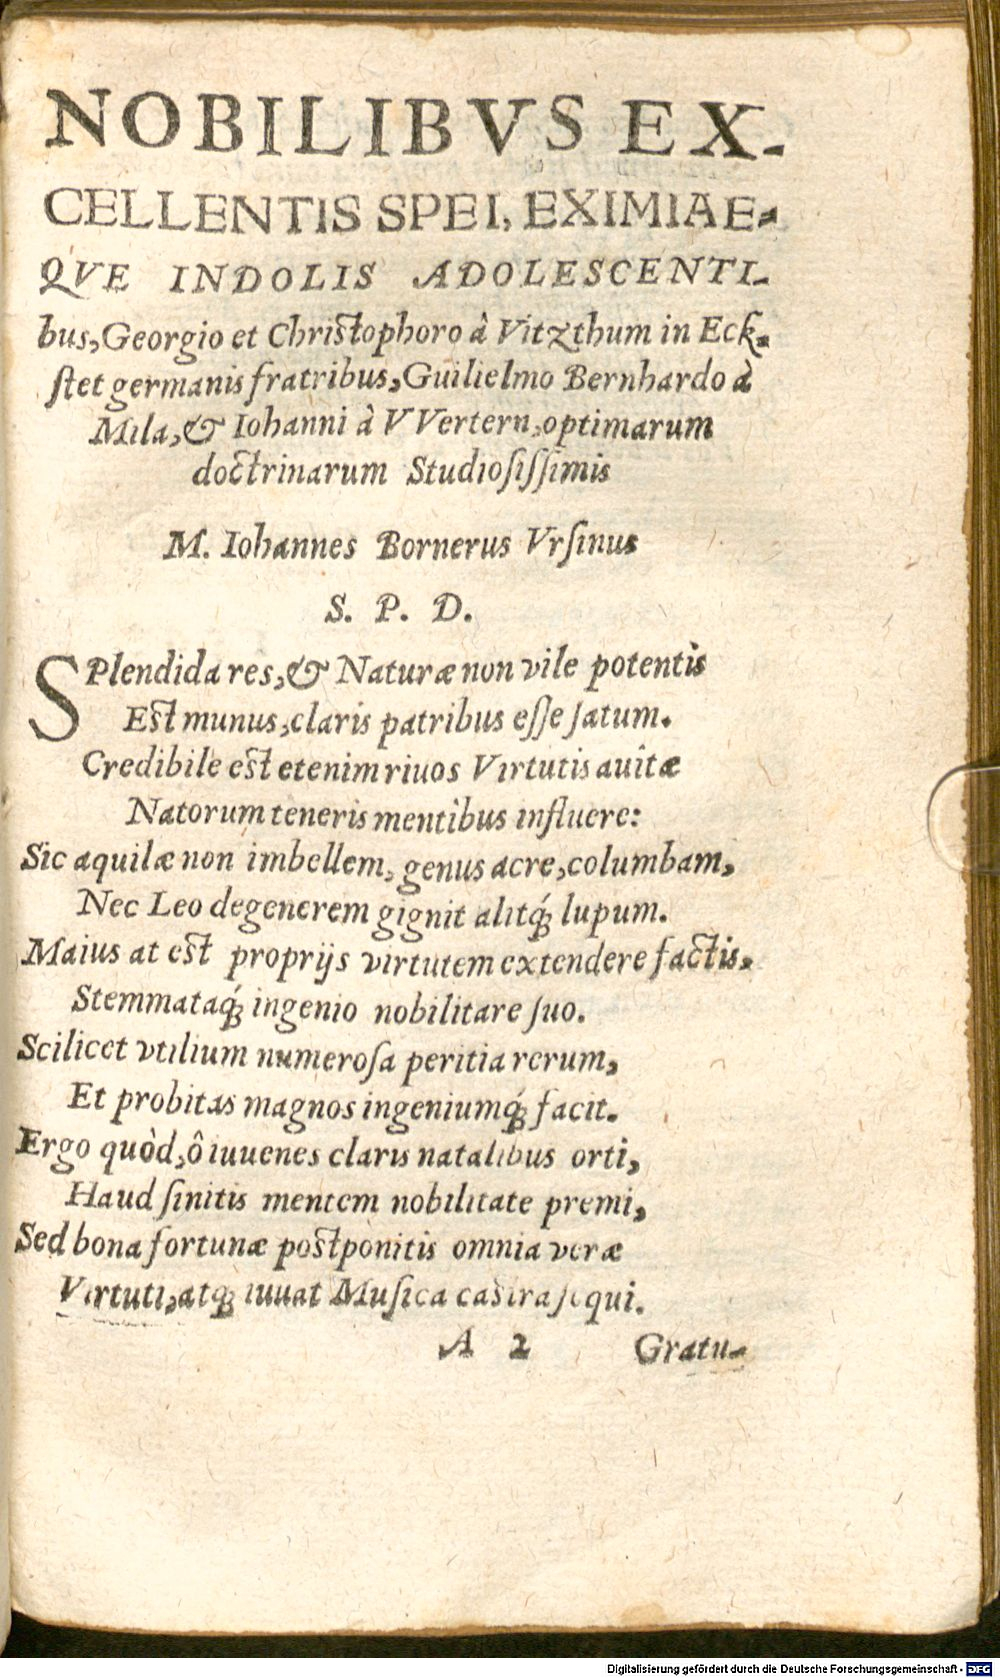 NOBILIBVS EX-
CELLENTIS SPEI, EXIMIAE-
QVE INDOLIS ADOLESCENTI-
bus, Georgio et Christophoro à Vitzthum in Eck-
stet germanis fratribus, Guilielmo Bernhardo à
Mila, & Iohanni à VVertern, optimarum
doctrinarum Studiosissimis
M. Iohannes Bornerus Vrsinus
S. P. D.
SPlendida res, & Naturæ non vile potentis
Est munus, claris patribus esse satum.
Credibile est etenim riuos Virtutis auitæ
Natorum teneris mentibus influere:
Sic aquilæ non imbellem, genus acre, columbam,
Nec Leo degenerem gignit alitq́; lupum.
Maius at est proprijs virtutem extendere factis,
Stemmataq́; ingenio nobilitare suo.
Scilicet vtilium numerosa peritia rerum,
Et probitas magnos ingeniumq́; facit.
Ergo quòd, ô iuuenes claris natalibus orti,
Haud sinitis mentem nobilitate premi,
Sed bona fortunæ postponitis omnia veræ
Virtuti, atq; iuuat Musica castra sequi.
A 2 Gratu-
Digitalisierung gefördert durch die Deutsche Forschungsgemeinschaft - DFG